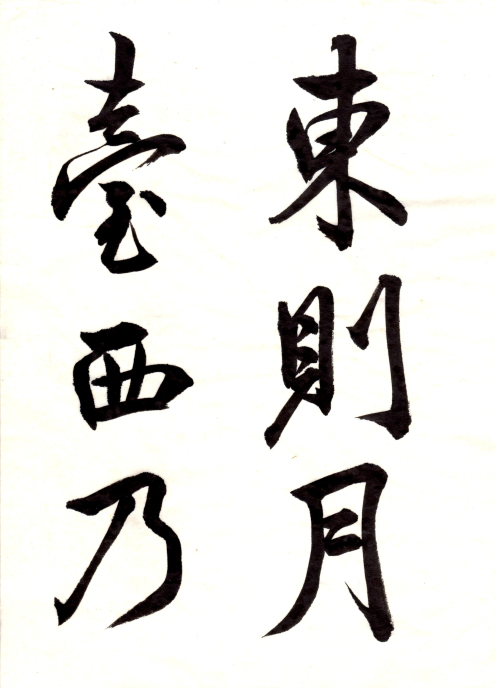 東則月
臺西乃